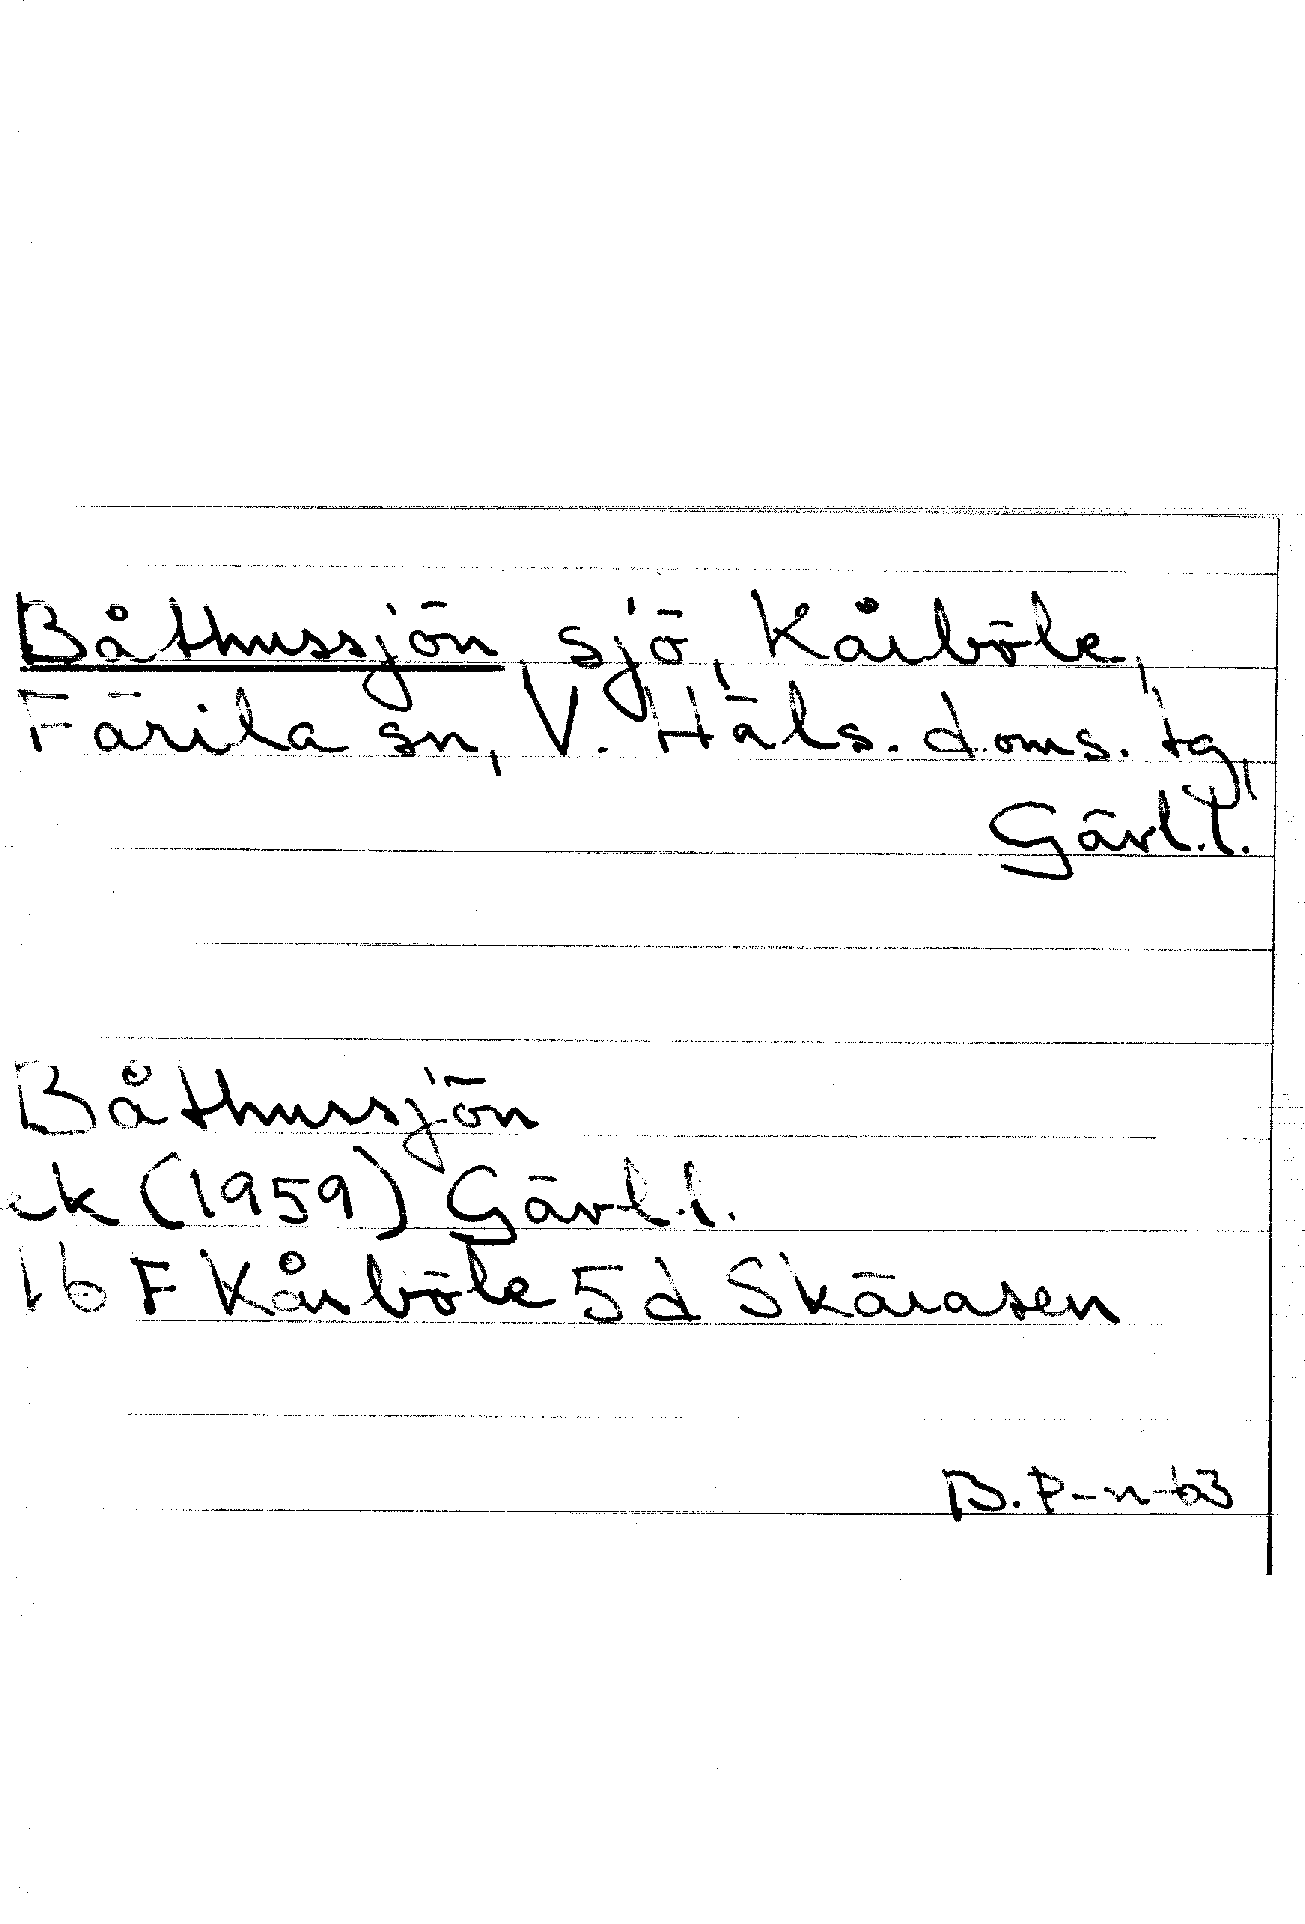 Båthussjön, sjö, Kårböle,
Färila sn, V. Häls. doms. tg,
Gävl.l.
Båthussjön
ek (1959) Gävl.l.
16 F Kårböle 5 d Skäråsen
B. P-n-63